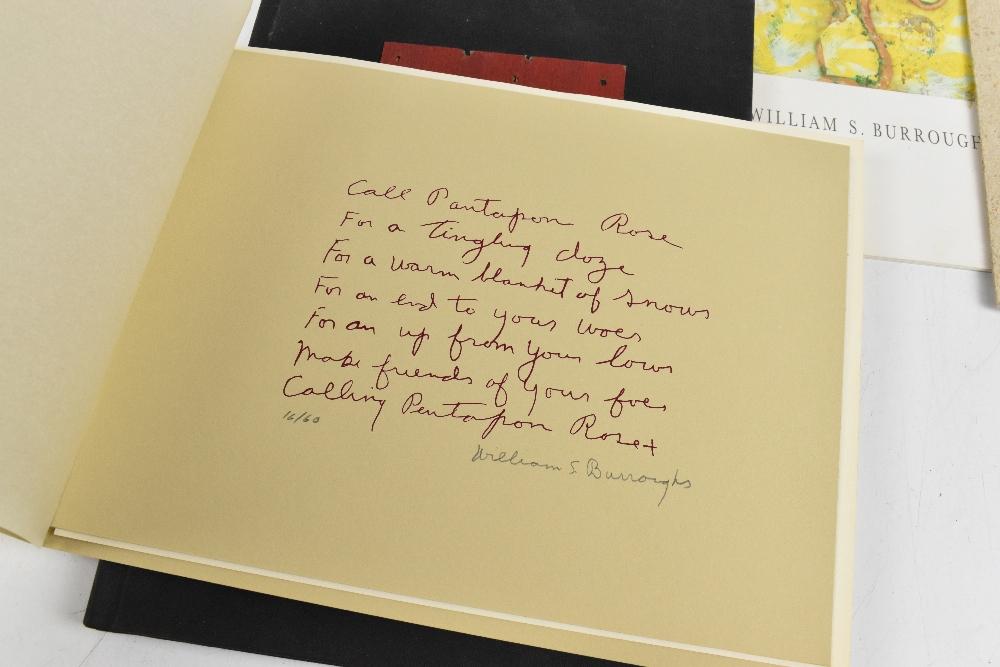 WILLIAM S. BURROUGH
Call Pantapon Rose
For a tingling doze
For a warm blanket of snows
For an end to your woes
For an up from your lows
Make friends of your foes
Calling Pentapon Rose+
16/60
William S. Burroughs